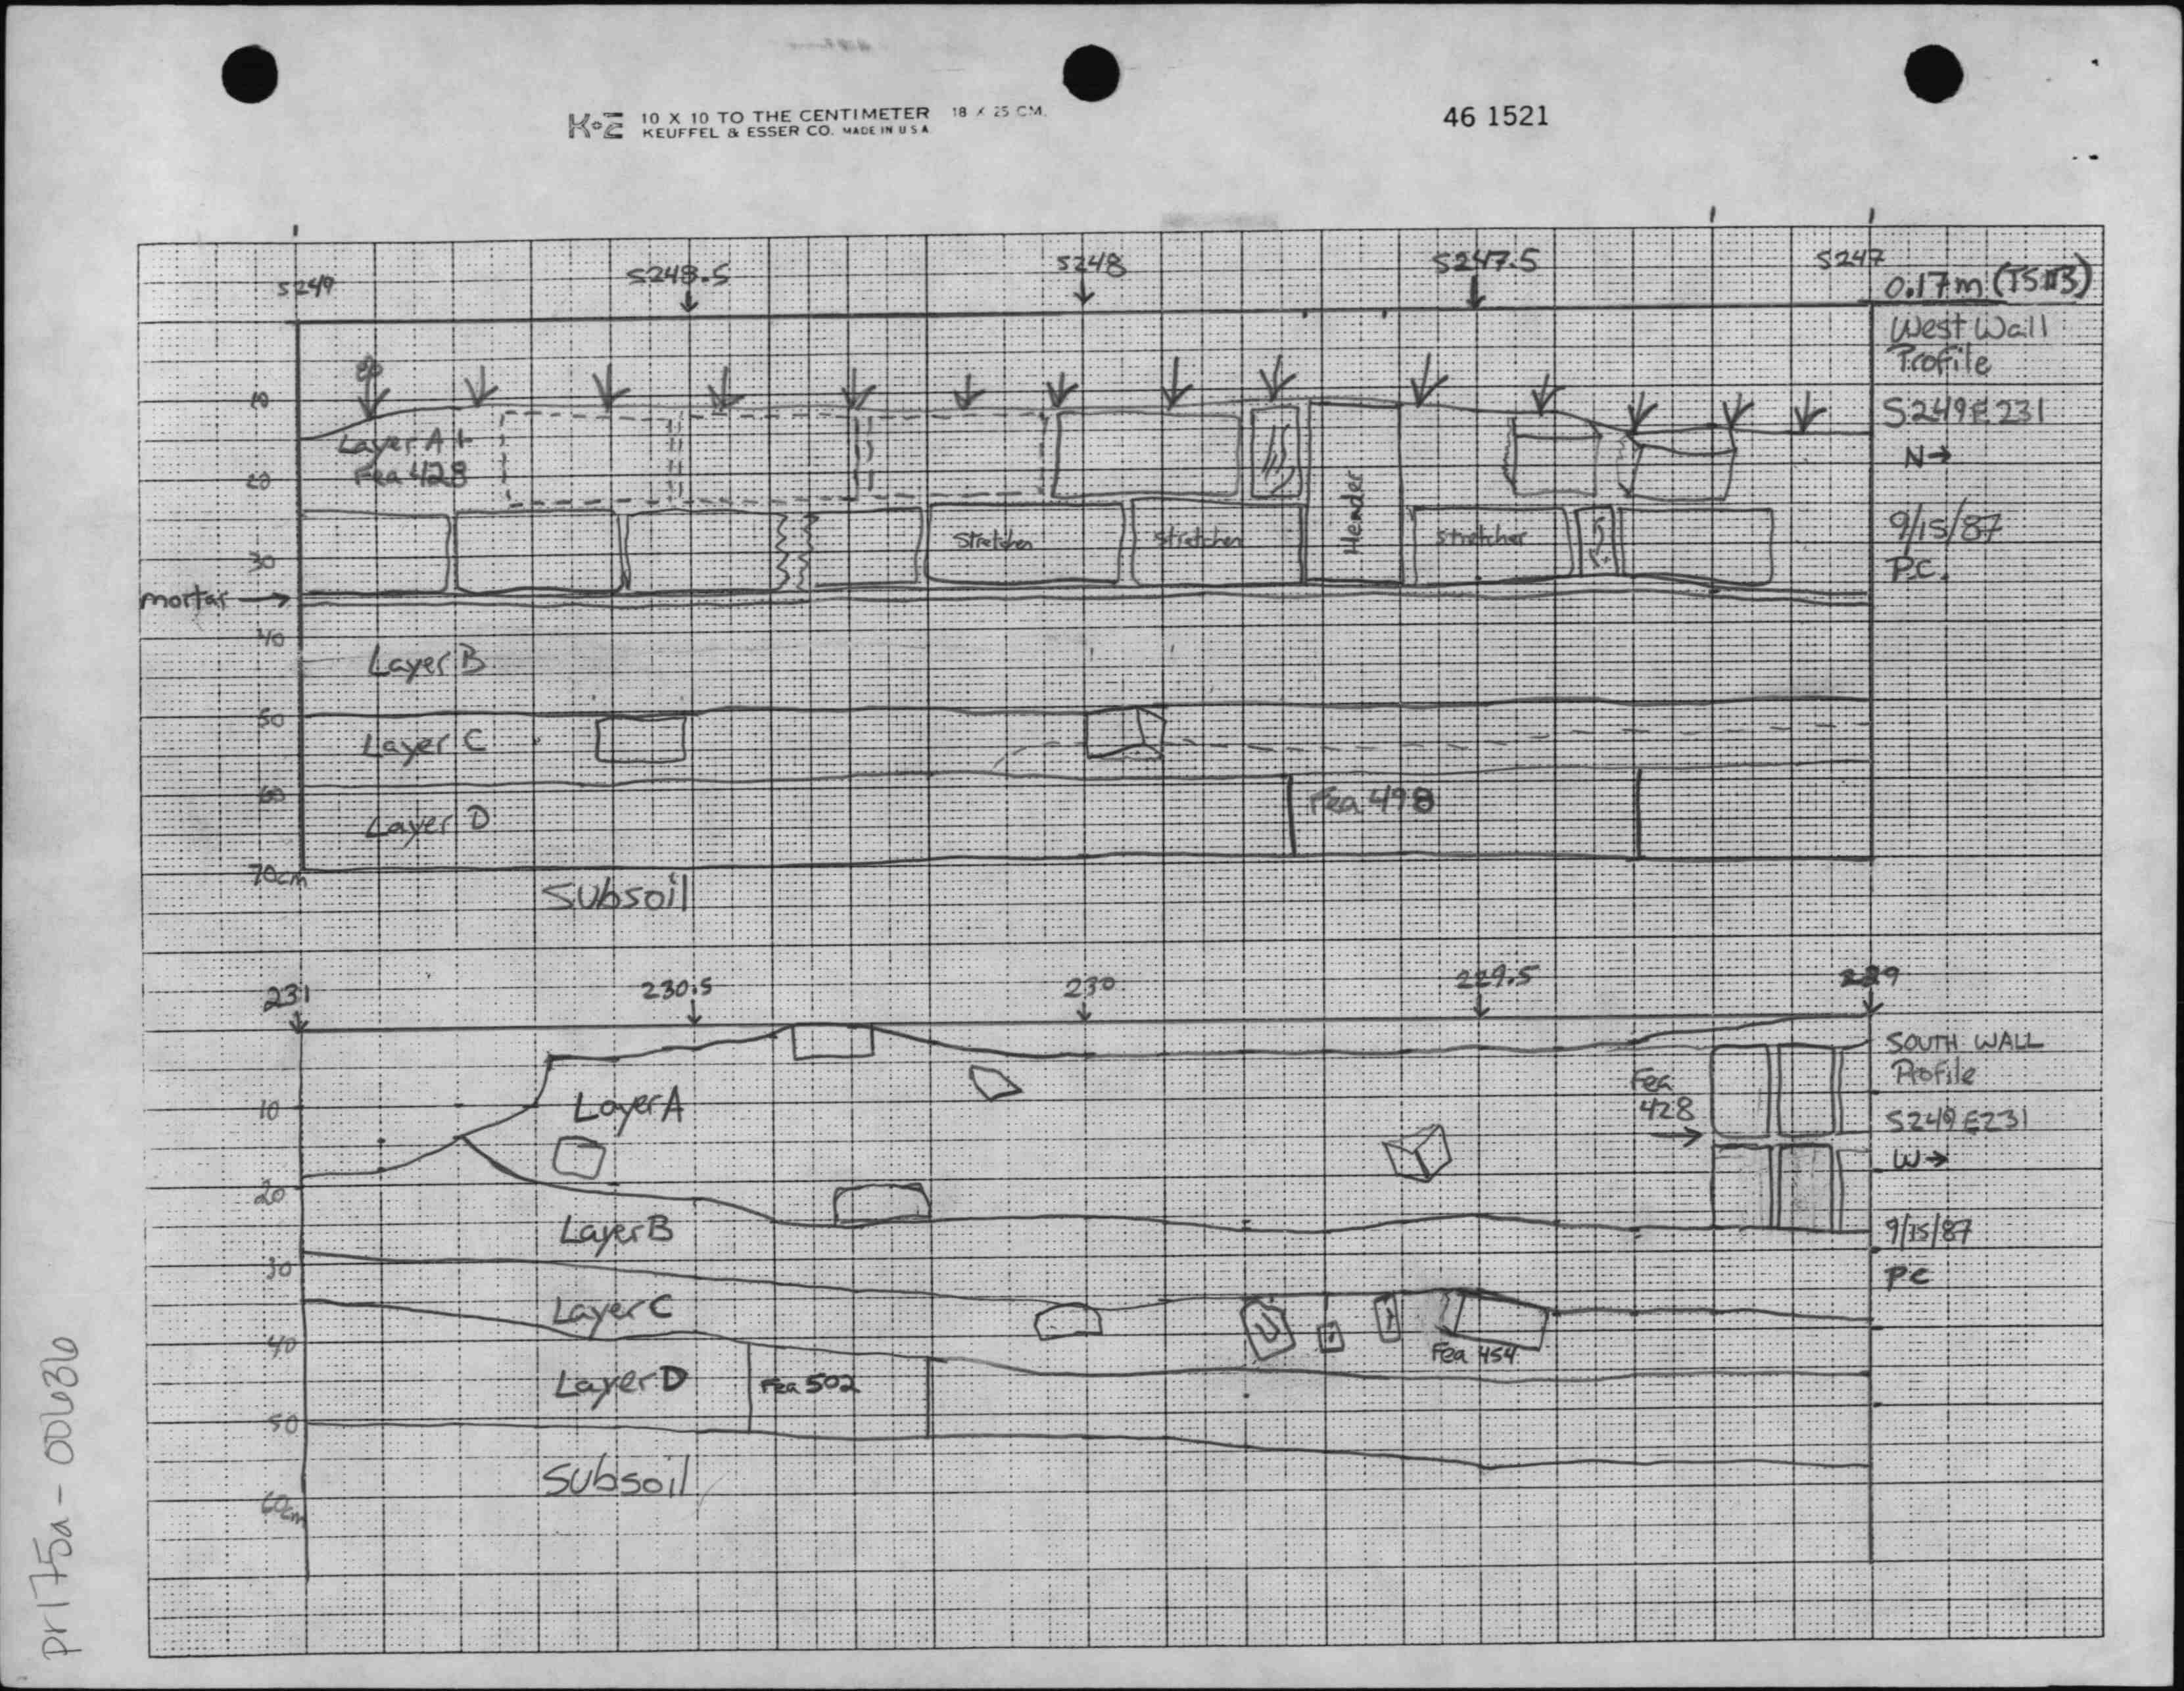 K+E 10 X 10 TO THE CENTIMETER 18 X 25 CM.
KEUFFEL & ESSER CO. MADE IN U S A
46 1521
S249
S248.5
S248
S247.5
S247
0.17m
West Wall
Profile
S249E231
N→
9/15/87
P.C.
10
Layer A +
Fea 428
20
Header
Stretcher
Stretcher
Stretcher
30
mortar →
40
Layer B
50
Layer C
60
Layer D
Fea 498
70cm
Subsoil
231
230.5
230
229.5
229
SOUTH WALL
Profile
S249 E231
W→
9/15/87
PC
Fea
428
10
Layer A
20
Layer B
30
Layer C
Fea 454
40
Layer D
Fea 502
50
Subsoil
60cm
pr175a-00636